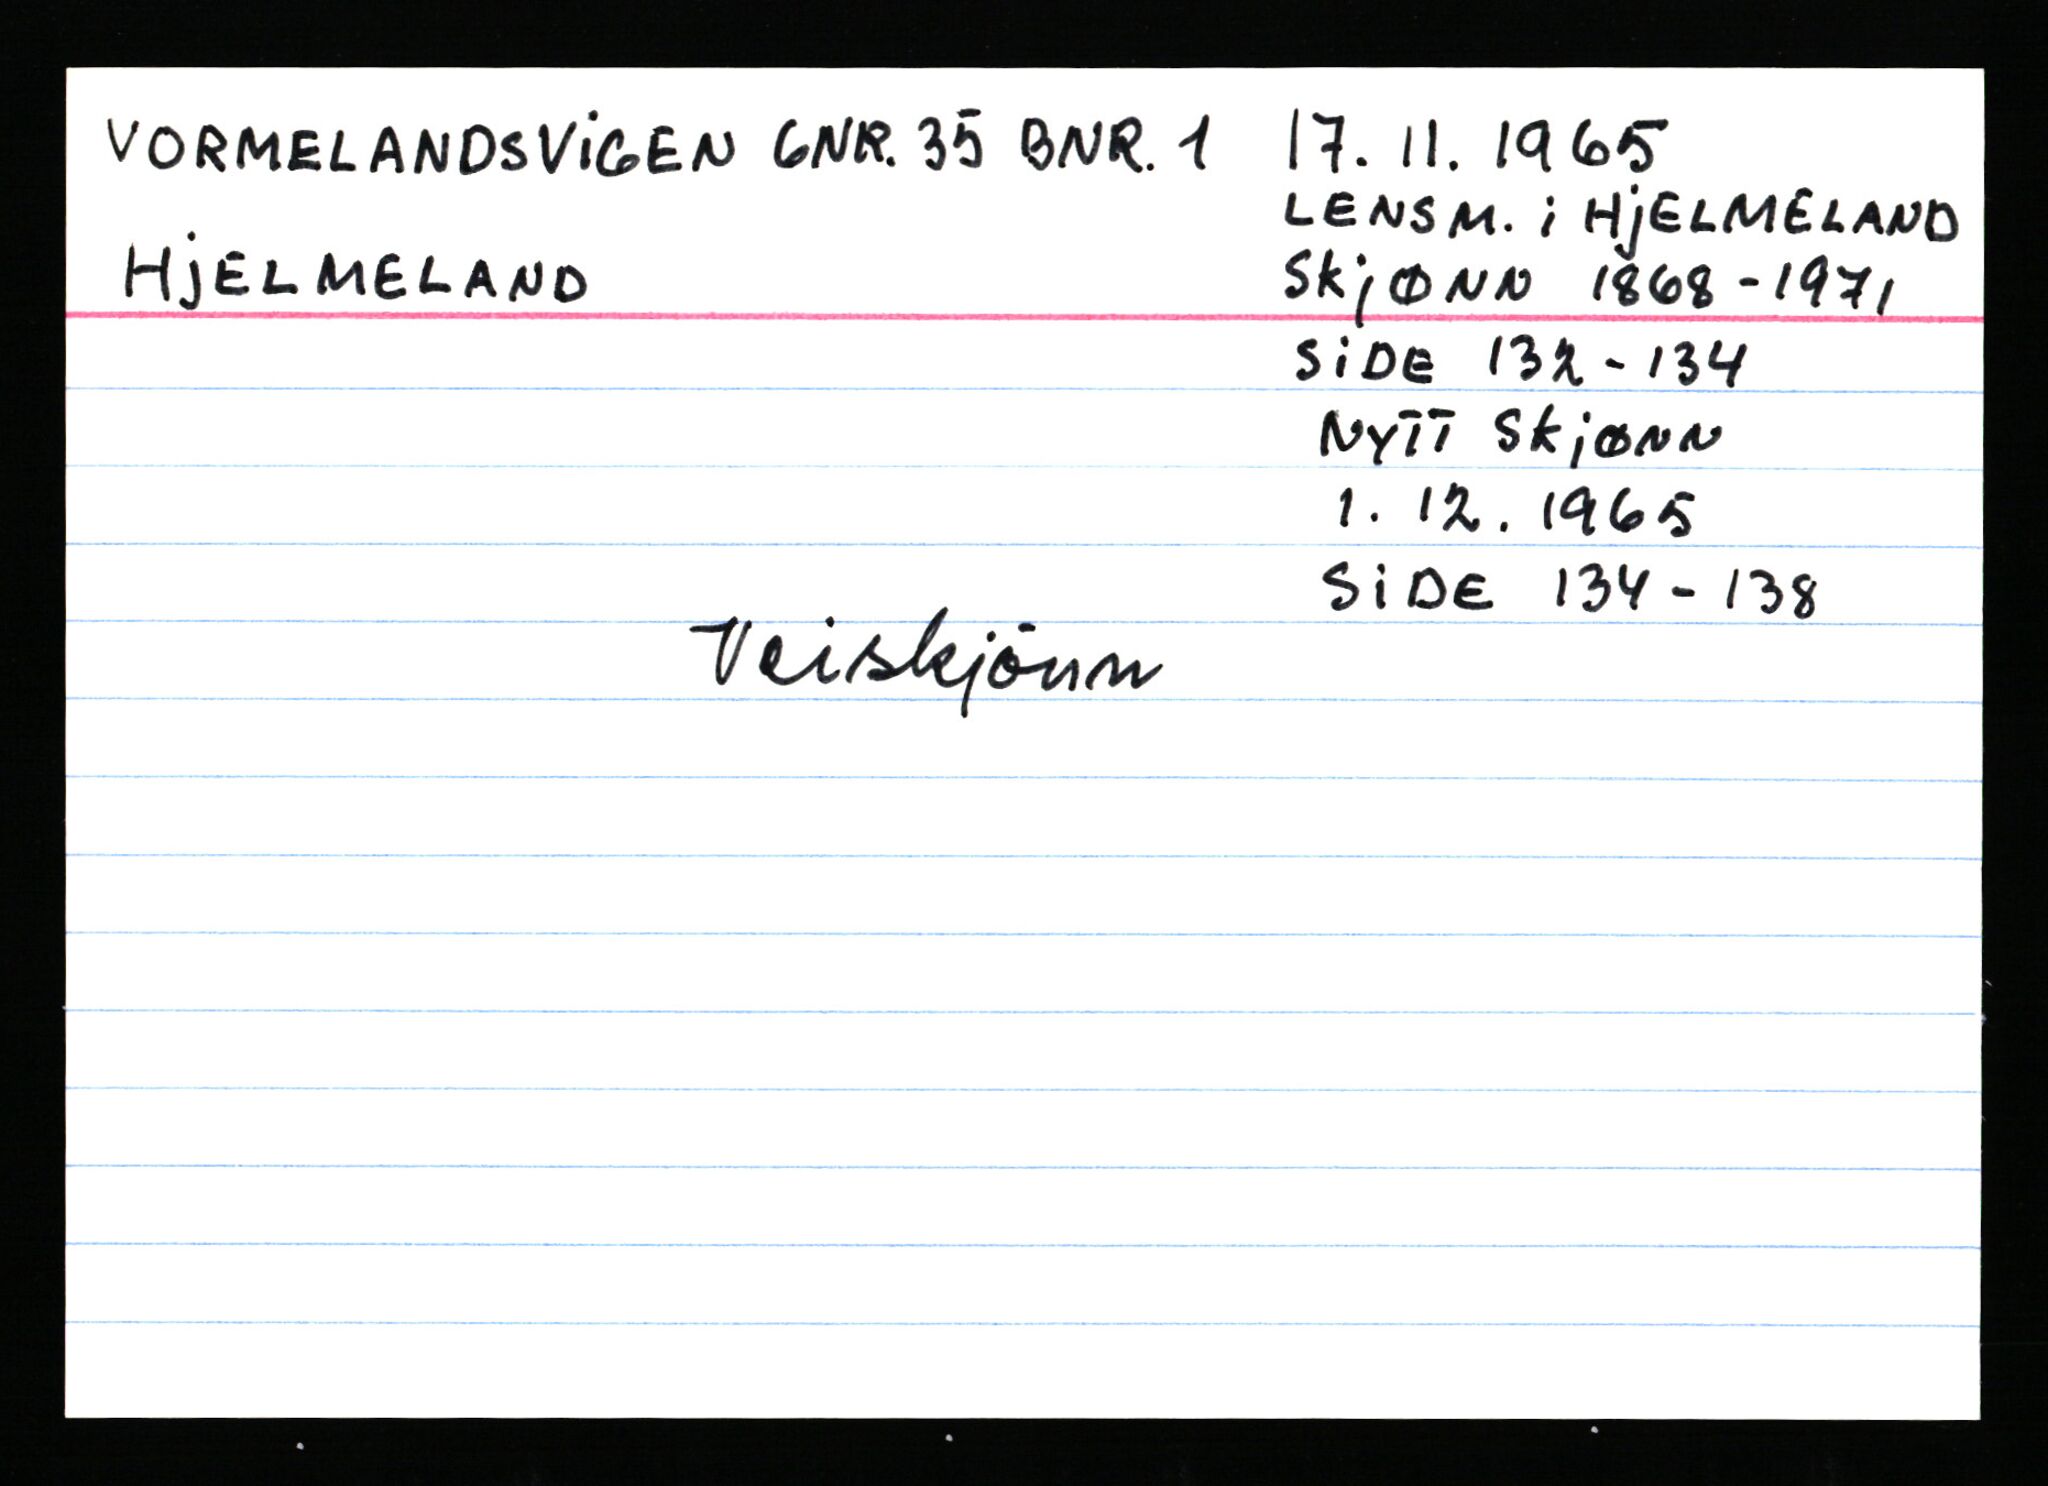 VORMELANDSVIGEN GNR. 35 BNR. 1 17.11.1965
LENSM. i HjELMELAND
HjELMELAND
SkjØNN 1868-1971
SiDE 132-134
NYTT SkjØNN
1.12.1965
SiDE 134-138
Veiskjönn